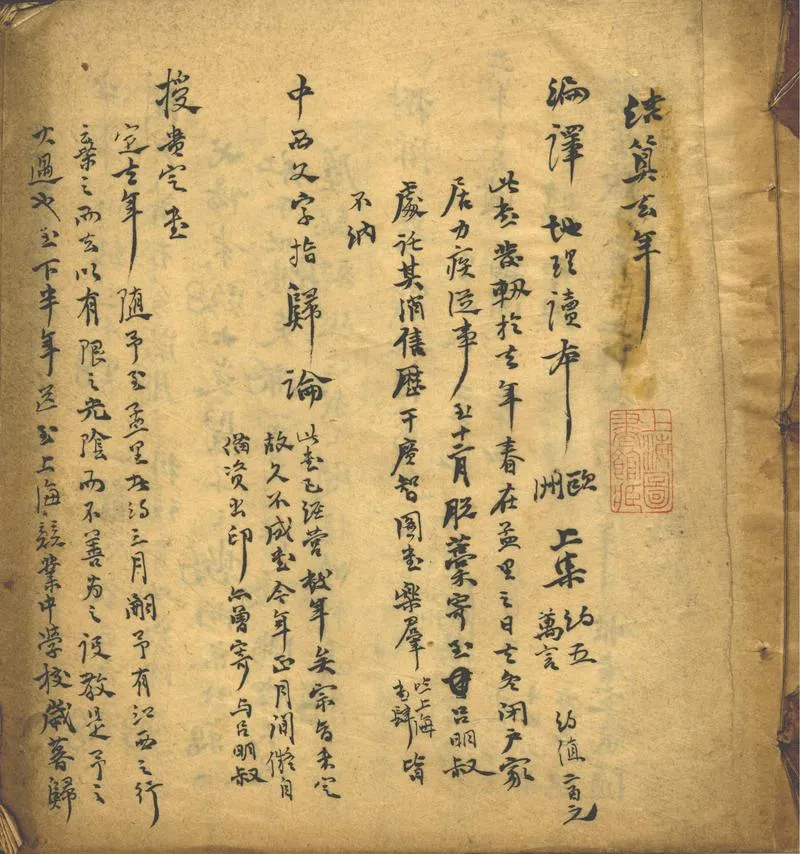 結算去年
編譯地理讀本 歐洲 上集 約五萬言 約值百元
此書發軔於去年春在孟里之日去冬閉戶家
居力疾從事至十二月脫藁寄至呂明叔
處託其消售歷干廣智圖書樂群 此上海書肆 皆
不納
中西文字指歸論 此書已經營數年矣宗旨未定
故久不成書今年正月間擬自
備資出印亦曾寄與呂明叔
授貴定書
定去年隨予至孟里共約三月嗣予有江西之行
棄之而去以有限之光陰而不善為之設教是予之
大過也至下半年送至上海競業中學校歲暮歸
上海圖
書館藏